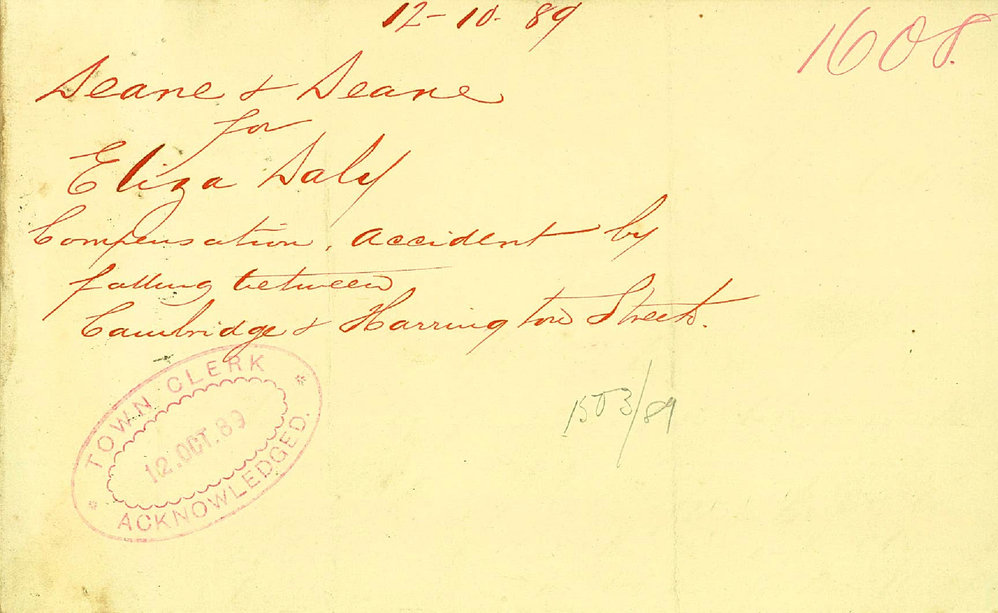 12-10-89
1608.
Deane & Deane
for
Eliza Daly
Compensation. Accident by
falling between
Cambridge & Harrington Streets.
1503/89
TOWN CLERK
12.OCT.89
ACKNOWLEDGED